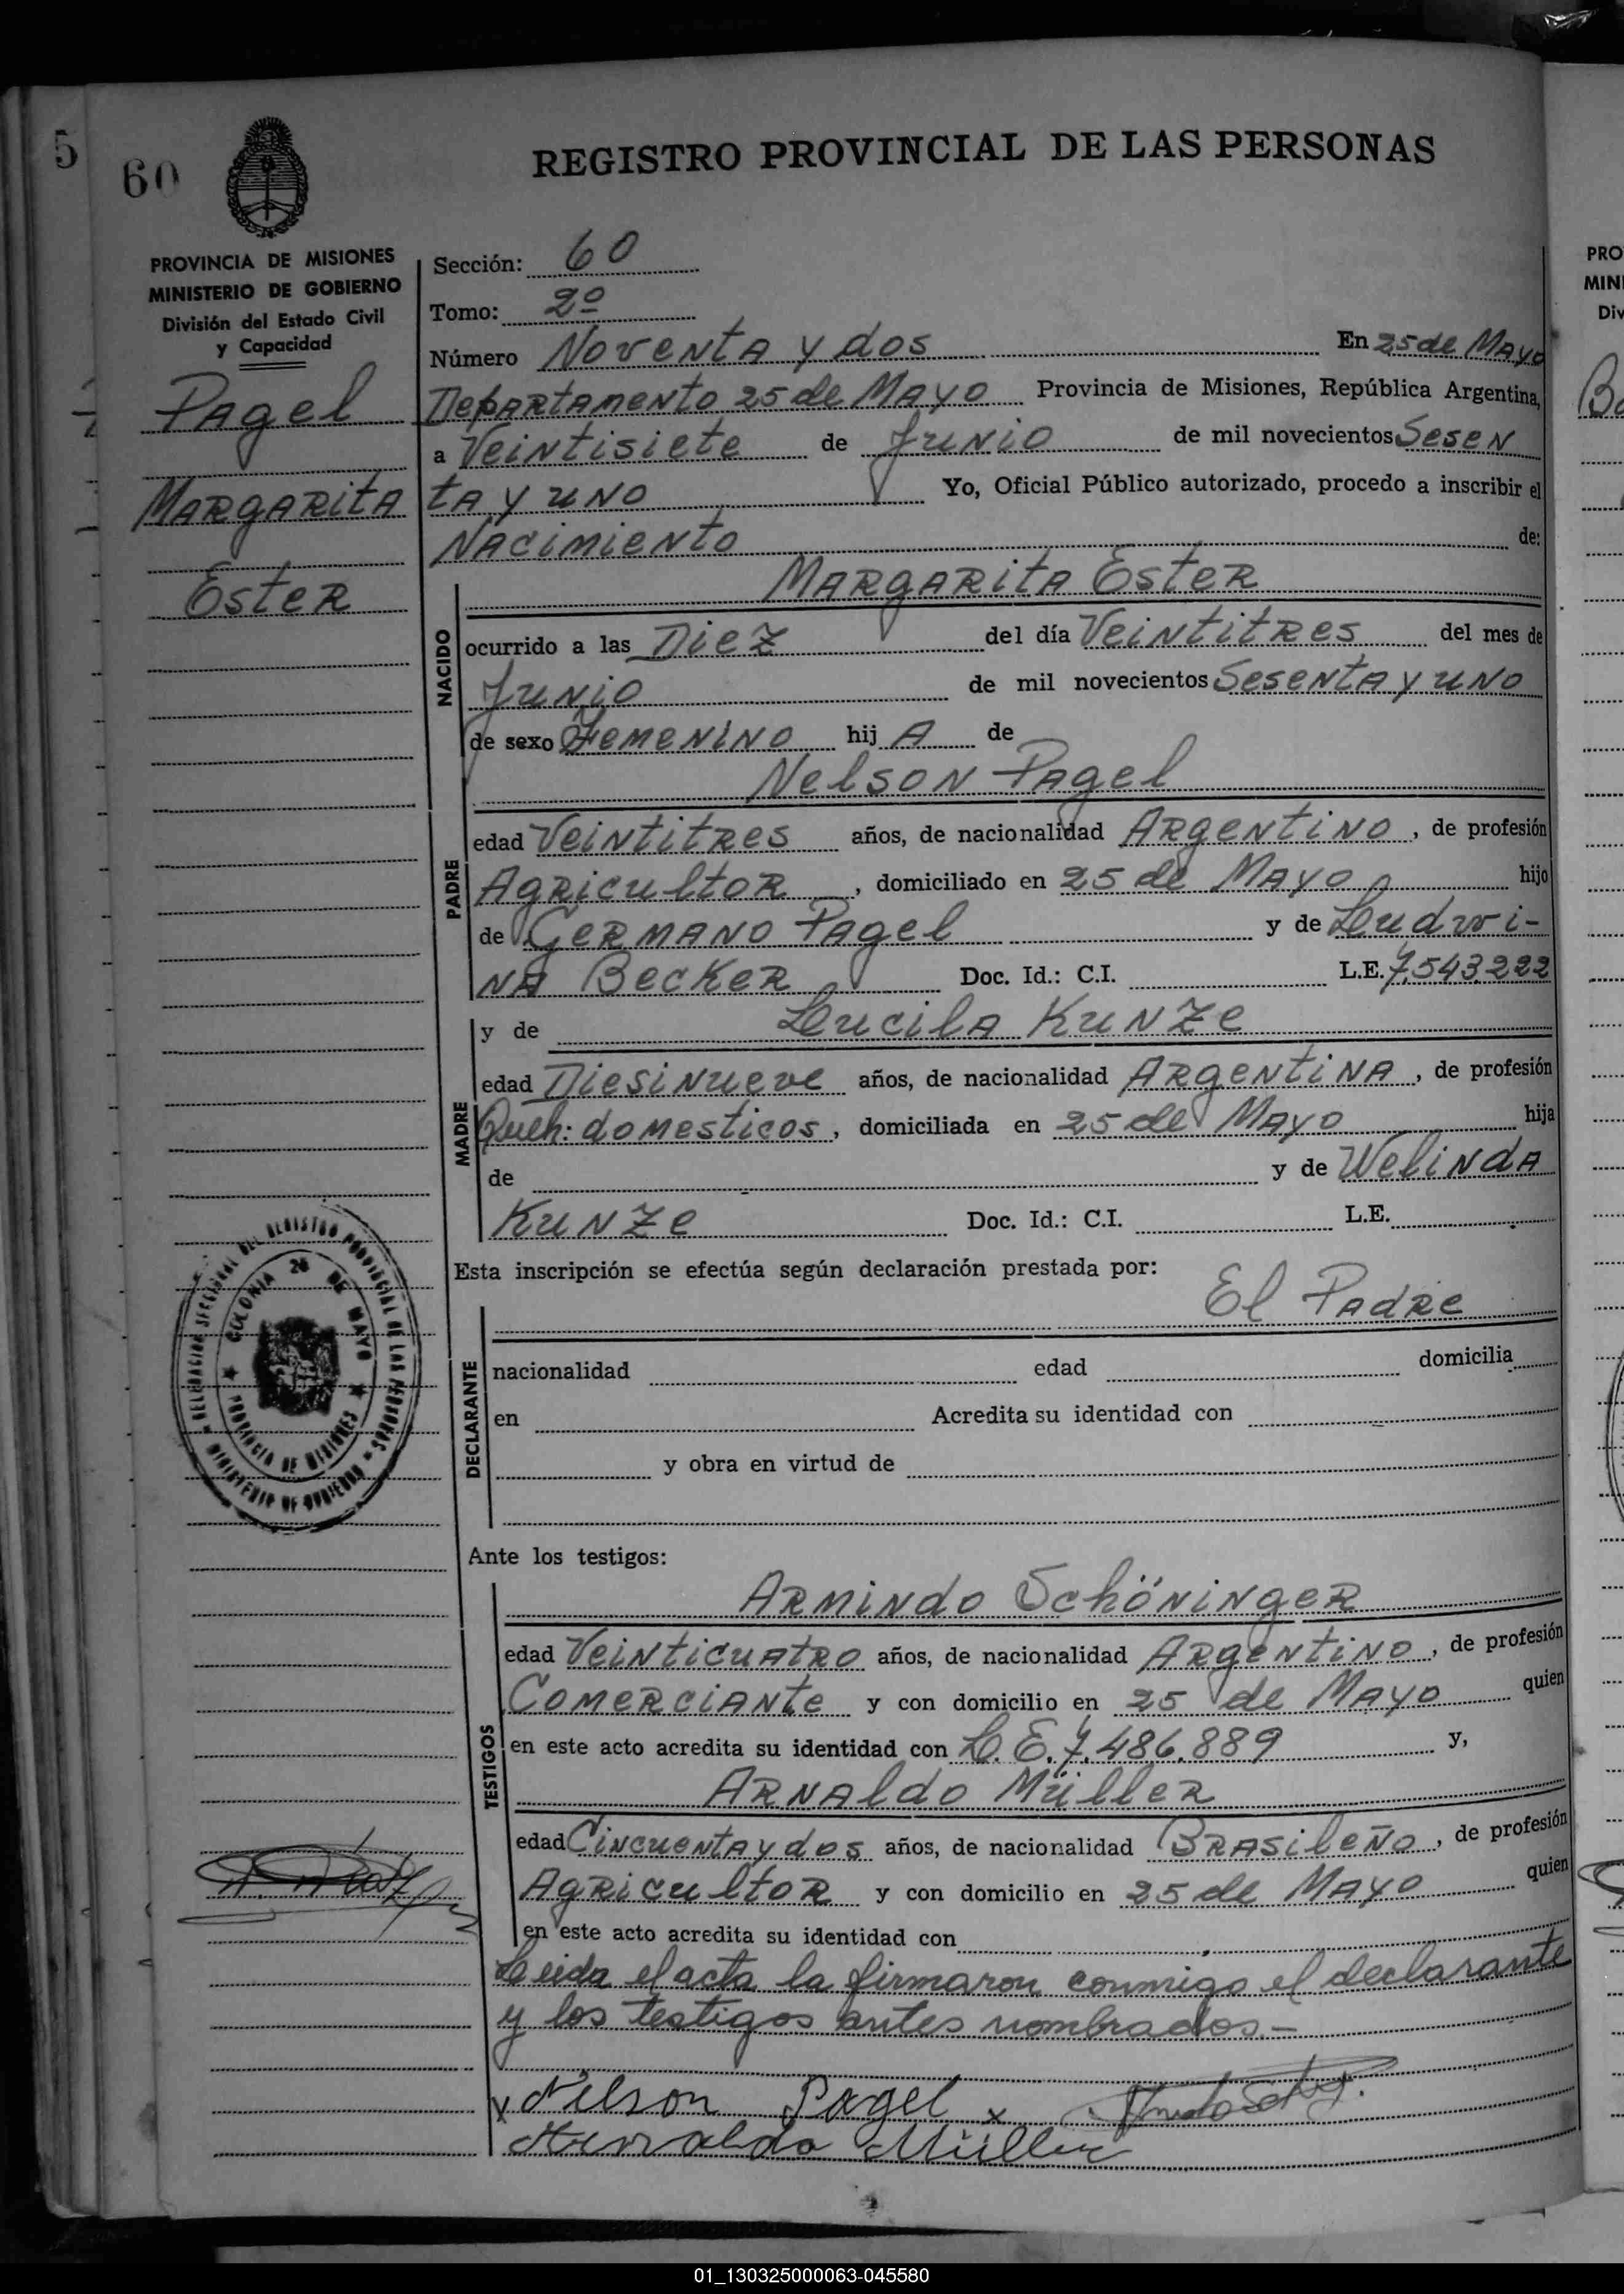 5
60
REGISTRO PROVINCIAL DE LAS PERSONAS
PROVINCIA DE MISIONES
MINISTERIO DE GOBIERNO
División del Estado Civil
y Capacidad
Pagel
Margarita
Ester
Sección: 60
Tomo: 2º
Número Noventa y dos En 25 de Mayo
Departamento 25 de Mayo Provincia de Misiones, República Argentina,
a Veintisiete de Junio de mil novecientos Sesen
ta y uno Yo, Oficial Público autorizado, procedo a inscribir el
Nacimiento de:
Margarita Ester
NACIDO
ocurrido a las Diez del día Veintitres del mes de
Junio de mil novecientos Sesenta y uno
de sexo Femenino hij A de
Nelson Pagel
PADRE
edad Veintitres años, de nacionalidad Argentino, de profesión
Agricultor, domiciliado en 25 de Mayo hijo
de Germano Pagel y de Ludwi-
na Becker Doc. Id.: C.I. L.E. 7.543.222
MADRE
y de Lucila Kunze
edad Diesinueve años, de nacionalidad Argentina, de profesión
Queh: domesticos, domiciliada en 25 de Mayo hija
de y de Welinda
Kunze Doc. Id.: C.I. L.E.
Esta inscripción se efectúa según declaración prestada por:
El Padre
DECLARANTE
nacionalidad edad domicilia
en Acredita su identidad con
y obra en virtud de
Ante los testigos:
TESTIGOS
Armindo Schöninger
edad Veinticuatro años, de nacionalidad Argentino, de profesión
Comerciante y con domicilio en 25 de Mayo quien
en este acto acredita su identidad con L.E. 7.486.889 y,
Arnaldo Müller
edad Cincuenta y dos años, de nacionalidad Brasileño, de profesión
Agricultor y con domicilio en 25 de Mayo quien
en este acto acredita su identidad con
Leida el acta la firmaron conmigo el declarante
y los testigos antes nombrados.-
x Nelson Pagel x
Arnaldo Müller
DELEGACION SECCIONAL DEL REGISTRO PROVINCIAL DE LAS PERSONAS
MINISTERIO DE GOBIERNO
COLONIA 25 DE MAYO
PROVINCIA DE MISIONES
PRO
MINI
Div
01_130325000063-045580